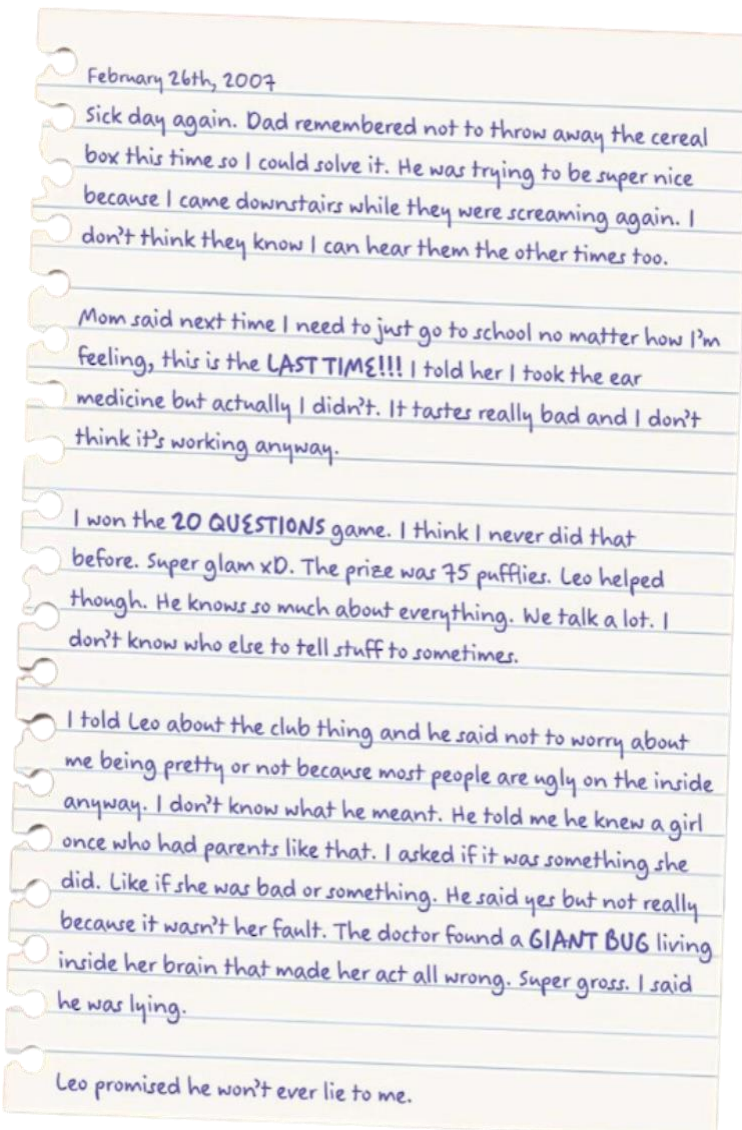 February 26th, 2007
Sick day again. Dad remembered not to throw away the cereal
box this time so I could solve it. He was trying to be super nice
because I came downstairs while they were screaming again. I
don't think they know I can hear them the other times too.
Mom said next time I need to just go to school no matter how I'm
feeling, this is the LAST TIME!!! I told her I took the ear
medicine but actually I didn't. It tastes really bad and I don't
think it's working anyway.
I won the 20 QUESTIONS game. I think I never did that
before. Super glam xD. The prize was 75 pufflies. Leo helped
though. He knows so much about everything. We talk a lot. I
don't know who else to tell stuff to sometimes.
I told Leo about the club thing and he said not to worry about
me being pretty or not because most people are ugly on the inside
anyway. I don't know what he meant. He told me he knew a girl
once who had parents like that. I asked if it was something she
did. Like if she was bad or something. He said yes but not really
because it wasn't her fault. The doctor found a GIANT BUG living
inside her brain that made her act all wrong. Super gross. I said
he was lying.
Leo promised he won't ever lie to me.